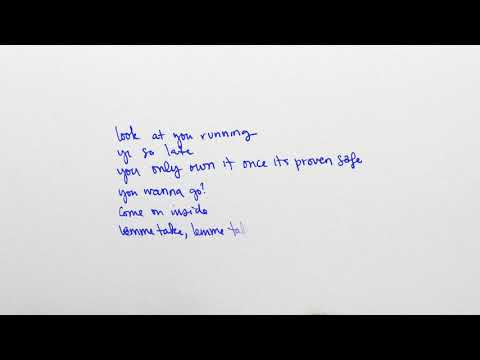 look at you running
yr so late
you only own it once its proven safe
you wanna go?
Come on inside
lemme take, lemme ta